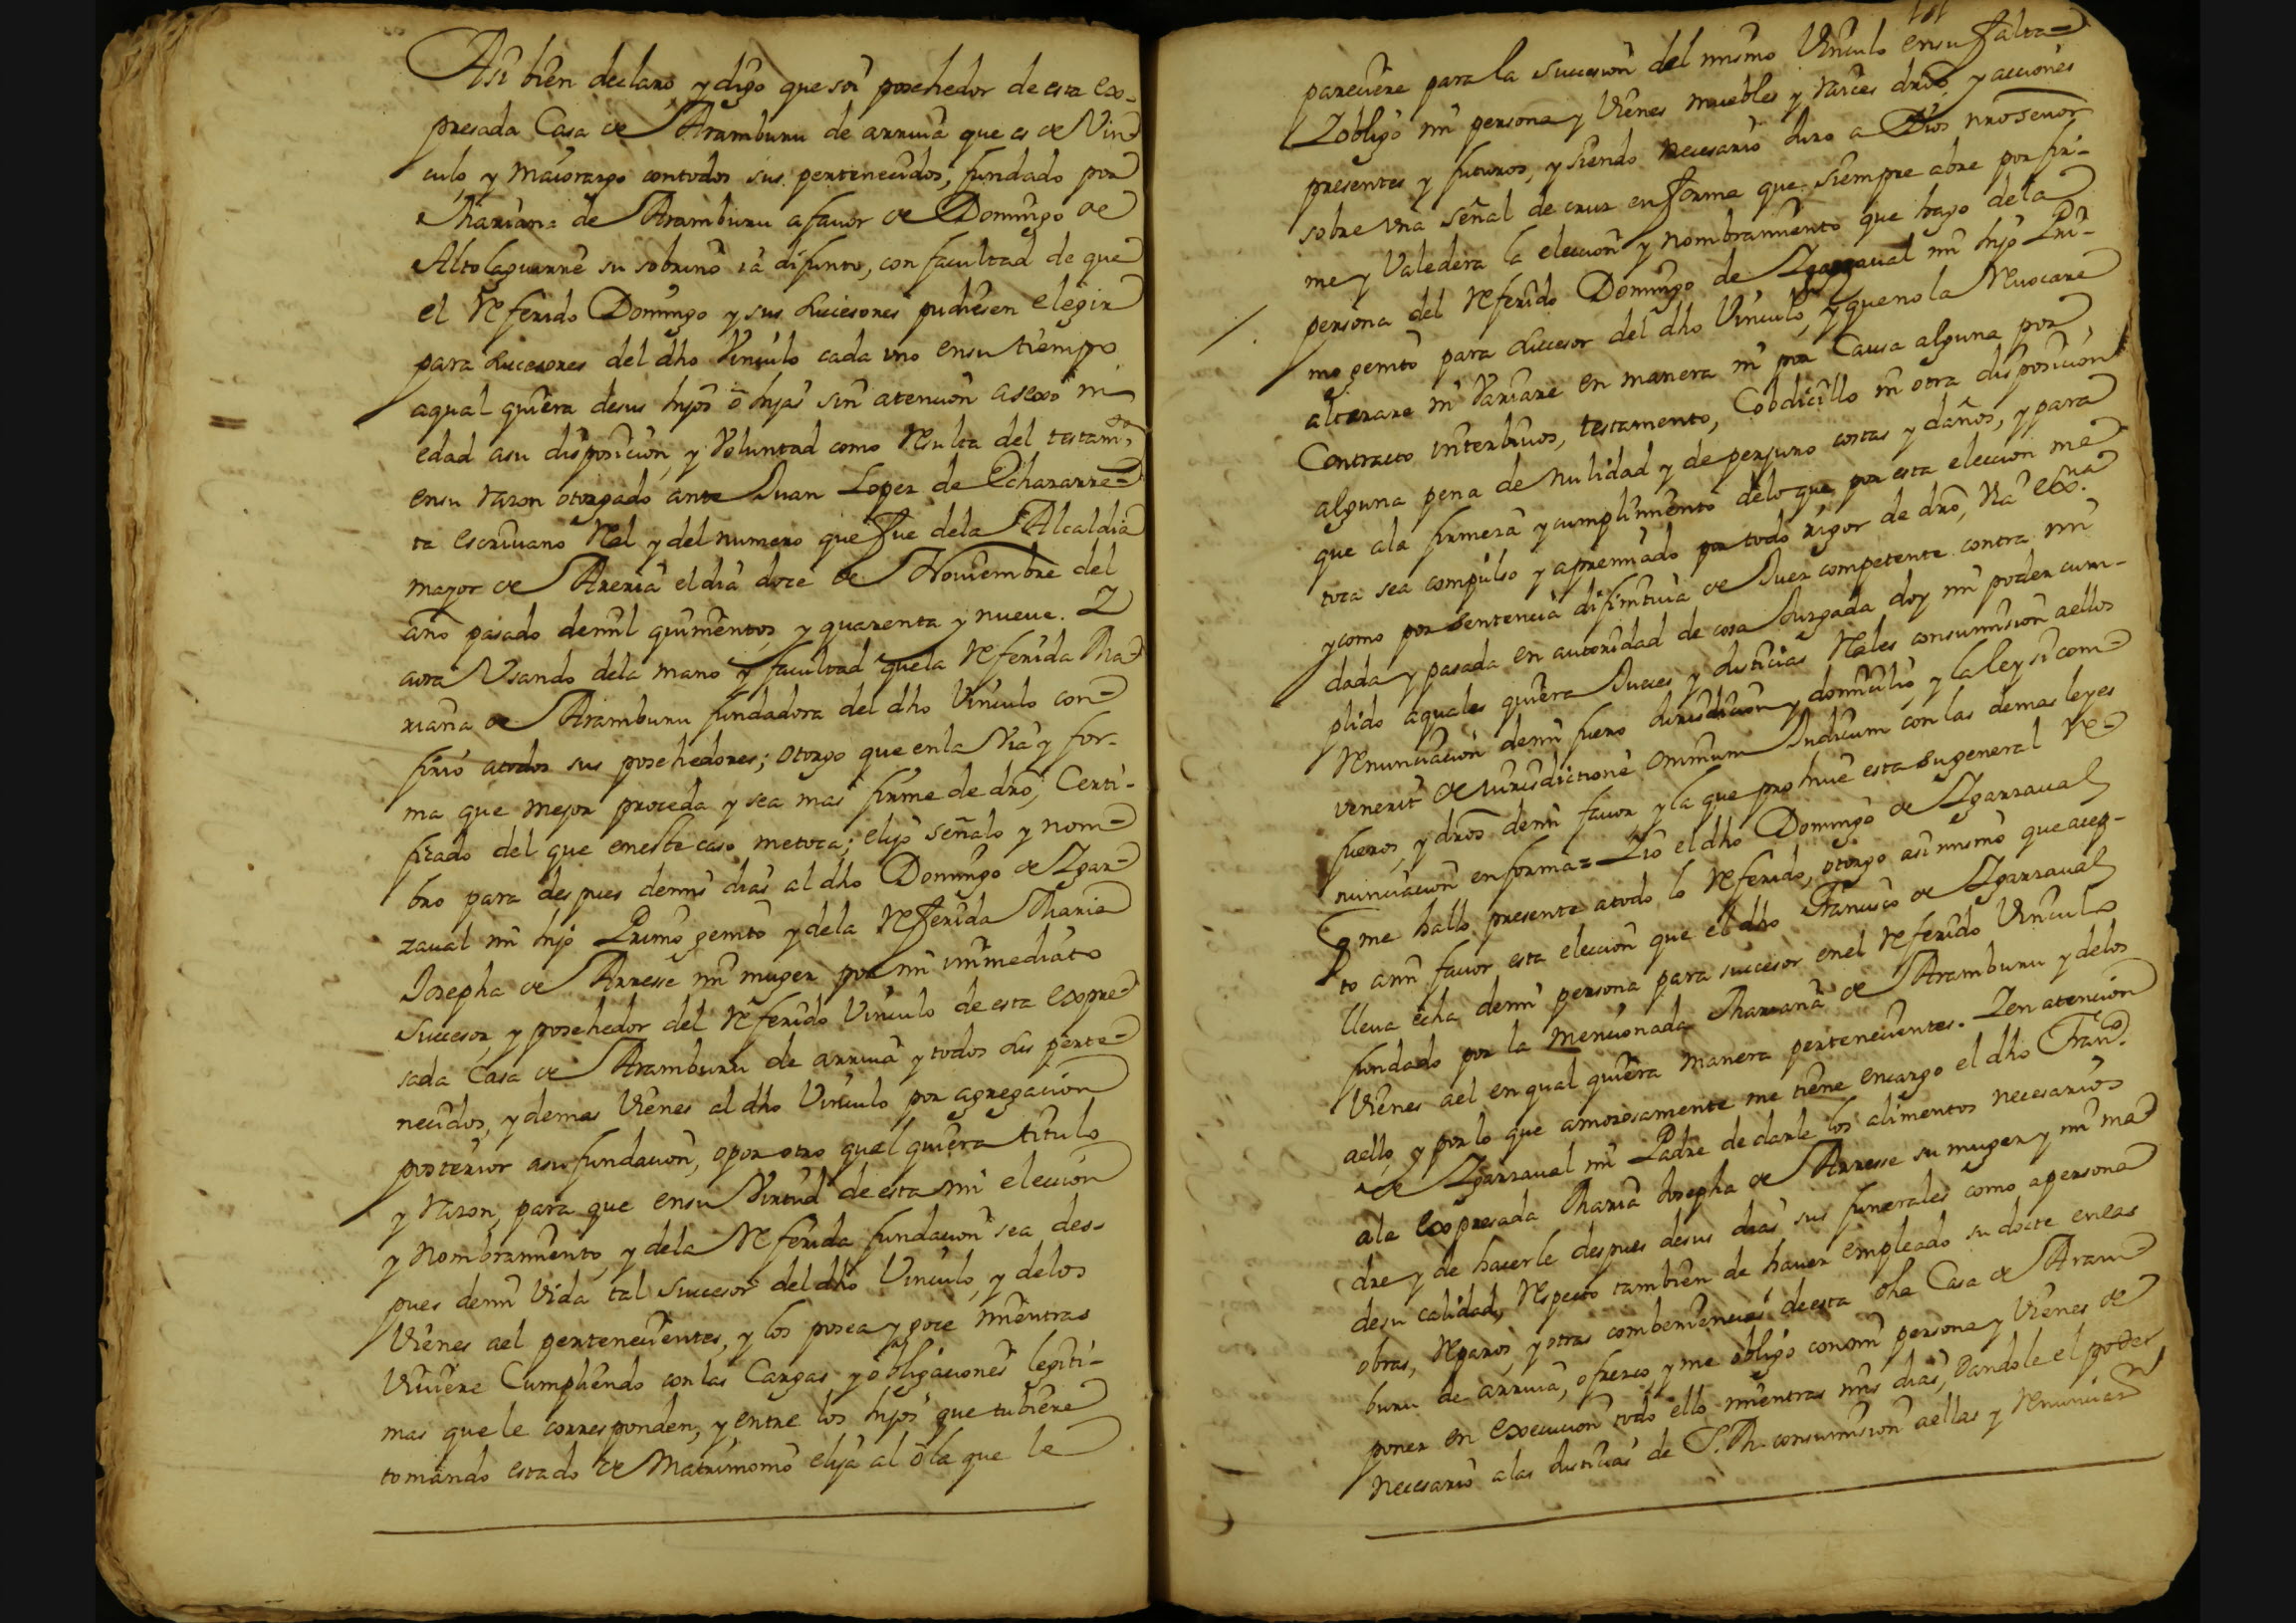 Asi bien declaro y digo que soi posehedor de esta ex-
presada Casa de Aramburu de arriua que es de Vin
culo y maiorazgo contodos sus pertenecidos, fundado por
Mariana de Aramburu afauor de Domingo de
Altolaguirre su sobrino ia difunto, con facultad de que
el Referido Domingo y sus succesores pudiesen elegir
para succesores del dho Vinculo cada uno ensu tiempo
aqual quiera desus hijos ô hijas sin atencion asexo ni
edad asu disposicion, y Voluntad como Resulta del testamto
ensu razon otorgado ante Juan Lopez de Echazarre-
ta escriuano Real y del numero que fue dela Alcaldia
mayor de Areria el dia doce de Nouiembre del
año pasado demil quinientos y quarenta y nueue. Y
aora Vsando dela mano y facultad quela Referida Ma
riana de Aramburu fundadora del dho Vinculo con-
firió atodos sus posehedores; otorgo que enla Via y for-
ma que mejor proceda y sea mas firme de dro; Certi-
ficado del que eneste caso metoca; elijo señalo y nom-
bro para despues demis dias al dho Domingo de Ygar-
zaual mi hijo Primo genito y dela Referida Maria
Josepha de Arresse mi muger por mi immediato
succesor y posehedor del Referido Vinculo de esta expre
sada Casa de Aramburu de arriua y todos sus perte-
necidos, y demas Vienes al dho Vinculo por agregacion
posterior asu fundacion, opor otro qual quiera titulo
y razon, para que ensu Virtud de esta mi eleccion
y nombramiento, y dela Referida fundacion sea des-
pues demi Vida tal succesor del dho Vinculo, y delos
Vienes ael pertenecientes, y los posea y goce mientras
Viuiere Cumpliendo con las Cargas y obligaciones legiti-
mas que le corresponden, y entre los hijos que tubiere
tomando estado de Matrimonio elija al ô la que le
parecíere para la succesion del mismo Vinculo ensu falta=
Y obligo mi persona y Vienes muebles y raices dros y acciones
presentes y futuros, y siendo necesario Juro a Dios nro señor
sobre una señal de cruz enforma que siempre abre por fir-
me y Valedera la eleccion y nombramiento que hago dela
persona del Referido Domingo de Ygarzaual mi hijo Pri-
mo genito para succesor del dho Vinculo, y queno la Reuocare
alterare ni Variare en manera ni por Causa alguna por
Contracto interbiuos, testamento, Cobdicillo ni otra disposicion
alguna pena de nulidad y de perjuro costas y daños, y para
que ala firmeza y cumplimiento delo que por esta eleccion me
toca sea compulso y apremiado por todo rigor de dro, Via exa
y como por sentencia difinitiua de Juez competente contra mi
dada y pasada en autoridad de cosa Juzgada doy mi poder cum-
plido aquales quiera Jueces y Justicias Reales consumision aellos
Renunciacion demi fuero Jurisdicion y domicilio y la ley si com
venerit de iurisdictione omnium Judicum con las demas leyes
fueros, y dros demi fauor y la que prohiue esta su general Re-
nunciacion enforma= Yio el dho Domingo de Ygarzaual
q me hallo presente atodo lo Referido, otorgo asi mismo que acep-
to ami fauor esta eleccion que el dho Francisco de Ygarzaual
lleua echa demi persona para succesor enel Referido Vinculo
fundado por la mencionada Mariana de Aramburu y delos
Vienes ael en qual quiera manera pertenecientes. Yen atencion
aello, y por lo que amorosamente me tiene encargo el dho Franco
de Ygarzaual mi Padre de darle los alimentos necesarios
ala expresada Maria Josepha de Arresse su muger y mi ma
dre y de hacerle despues desus dias sus funerales como apersona
desu calidad, Respecto tambien de hauer empleado su docte enlas
obras, Reparos, y otras combeniencias deesta dha Casa de Aram
buru de arriua, ofrezco y me obligo conmi persona y Vienes de
poner en execucion todo ello mientras mis dias, dandole el poder
necesario alas Justicias de S. M. consumision aellas y renunciaon